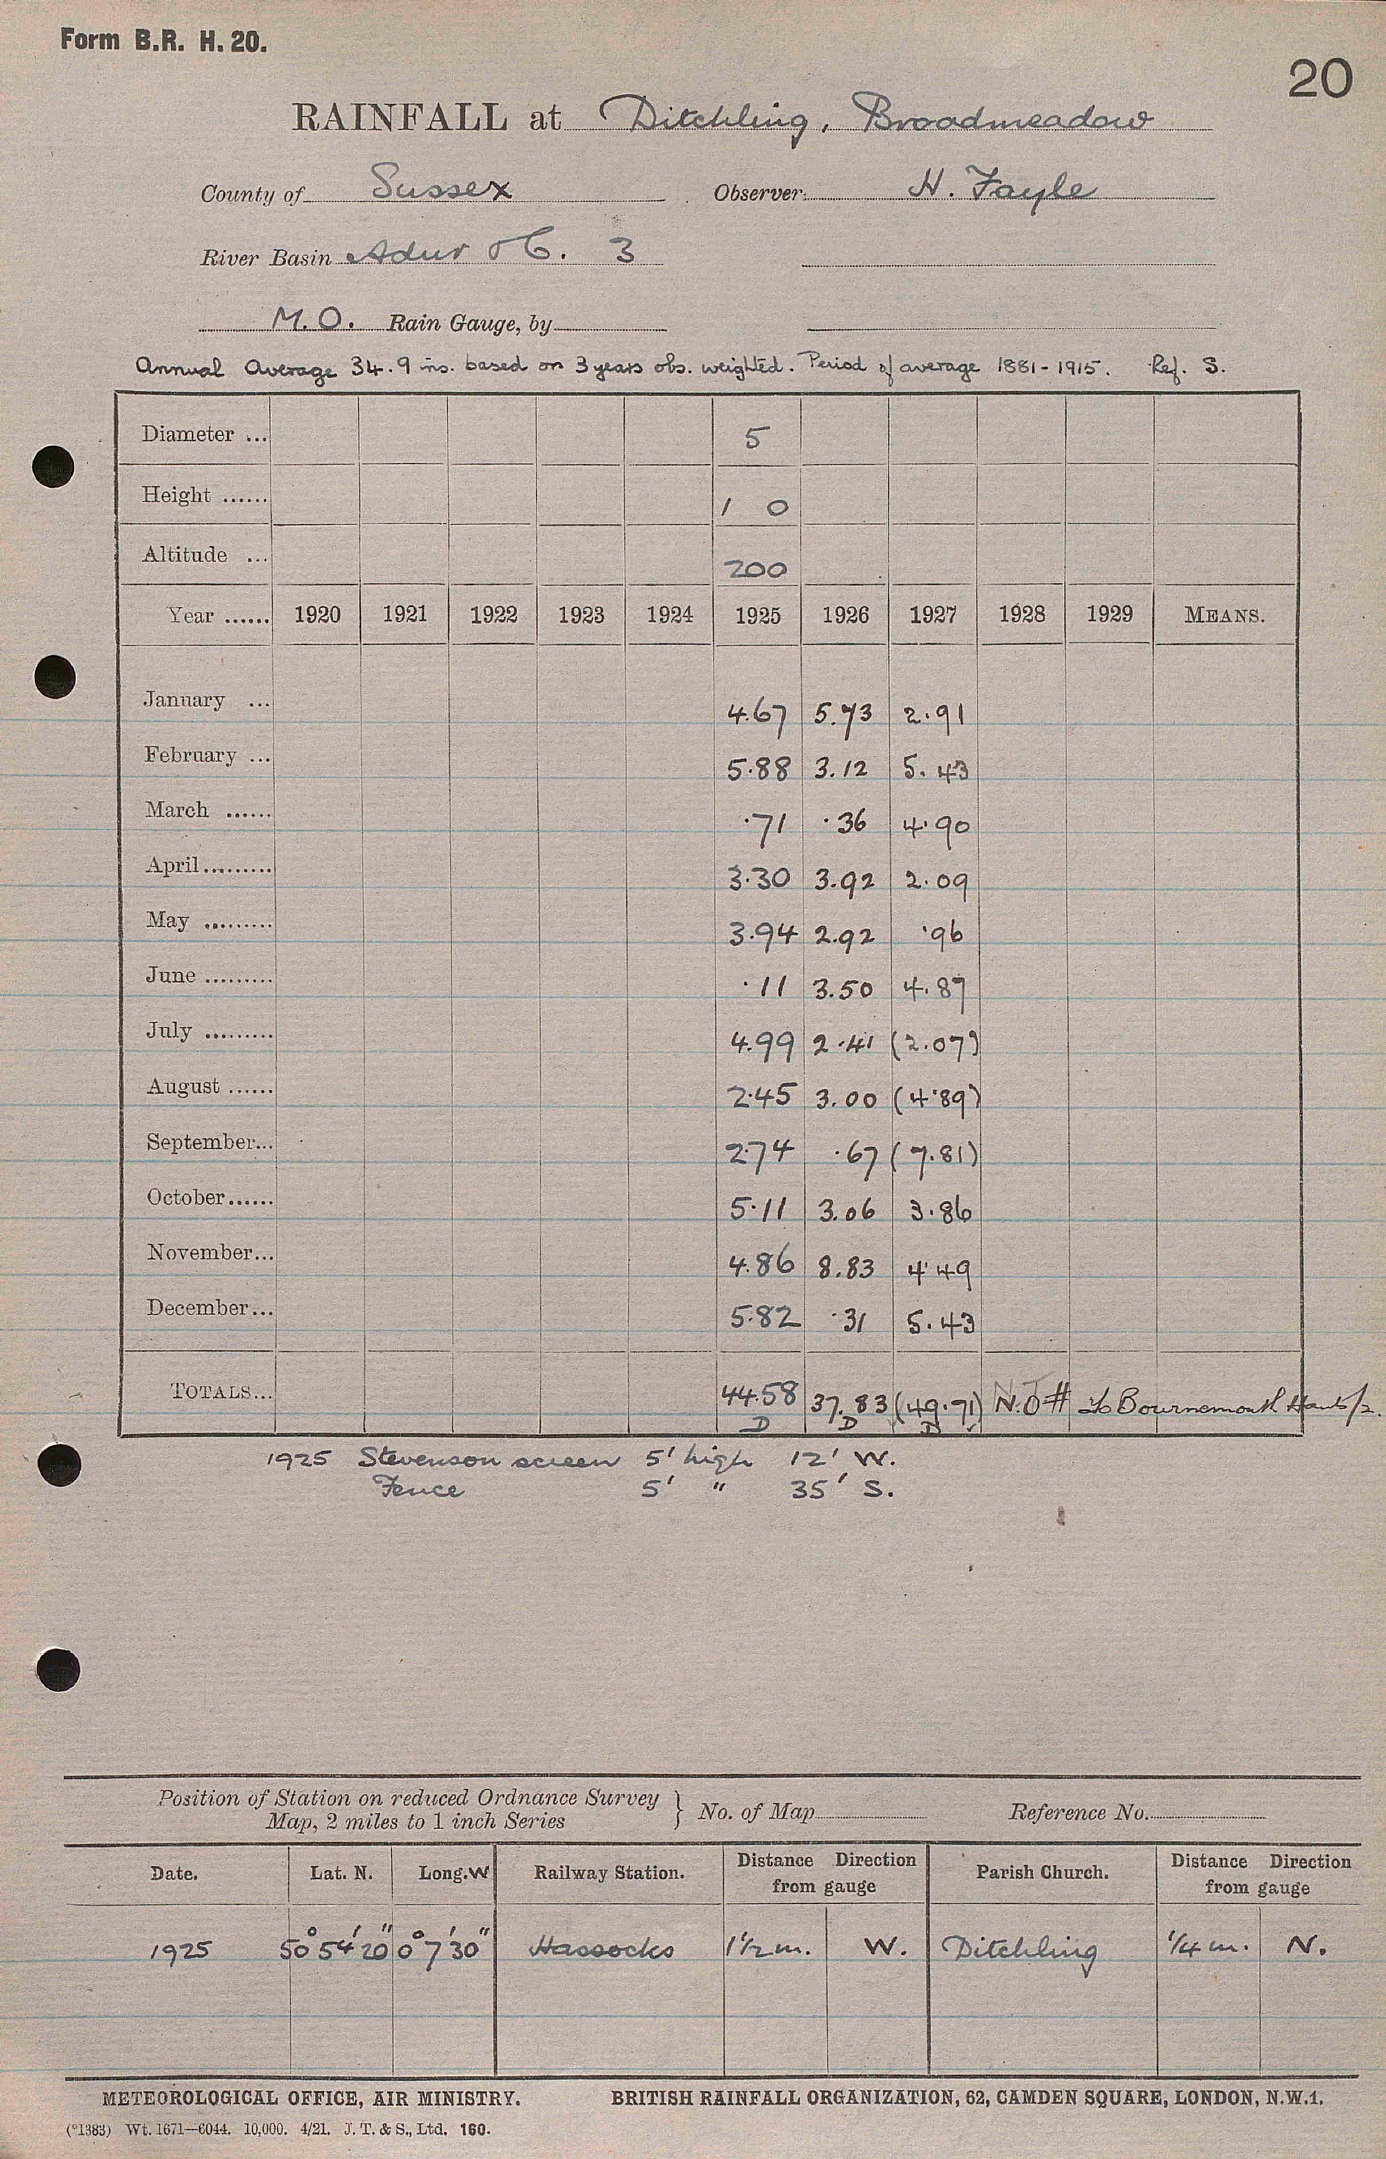 Form B.R. H. 20.
20
RAINFALL at Ditchling, Broadmeadow
County of Sussex Observer: H. Fayle
River Basin Adur &c. 3
M.O. Rain Gauge, by
Annual Average 34.9 ins. based on 3 years obs. weighted. Period of average 1881-1915. Ref. S.
Diameter ... 5
Height ...... 1 0
Altitude ... 200
Year ...... 1920 1921 1922 1923 1924 1925 1926 1927 1928 1929 MEANS.
January ... 4.67 5.73 2.91
February ... 5.88 3.12 5.43
March ...... .71 .36 4.90
April ......... 3.30 3.92 2.09
May ......... 3.94 2.92 .96
June ......... .11 3.50 4.87
July ......... 4.99 2.41 (2.07)
August ...... 2.45 3.00 (4.89)
September... 2.74 .67 (7.81)
October...... 5.11 3.06 3.86
November... 4.86 8.83 4.49
December... 5.82 .31 5.43
TOTALS... 44.58 37.83 (49.71) N.O # to Bournemouth Hants/2.
D D D
1925 Stevenson screen 5' high 12' W.
Fence 5' " 35' S.
Position of Station on reduced Ordnance Survey
Map, 2 miles to 1 inch Series } No. of Map Reference No.
Date. Lat. N. Long. W Railway Station. Distance Direction from gauge Parish Church. Distance Direction from gauge
1925 50° 54' 20" 0° 7' 30" Hassocks 1 1/2 m. W. Ditchling 1/4 m. N.
METEOROLOGICAL OFFICE, AIR MINISTRY. BRITISH RAINFALL ORGANIZATION, 62, CAMDEN SQUARE, LONDON, N.W.1.
(*1383) Wt. 1671—6044. 10,000. 4/21. J. T. & S., Ltd. 160.